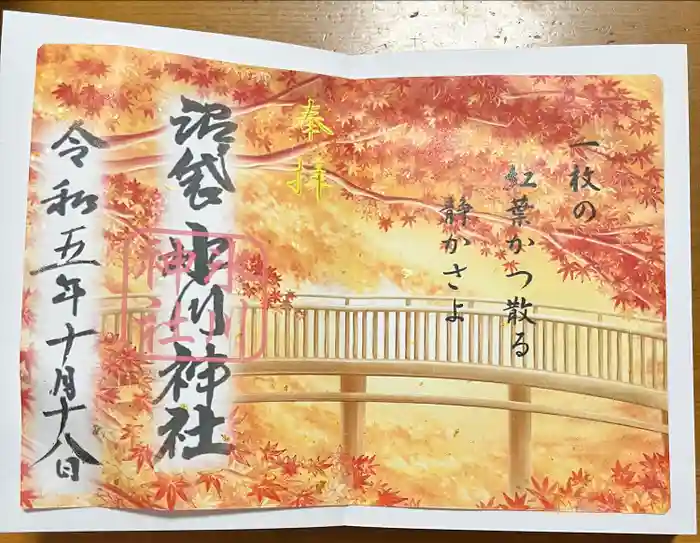 一枚の
紅葉かつ散る
静かさよ
奉拝
沼袋 氷川神社
氷川
神社
令和五年十月十八日